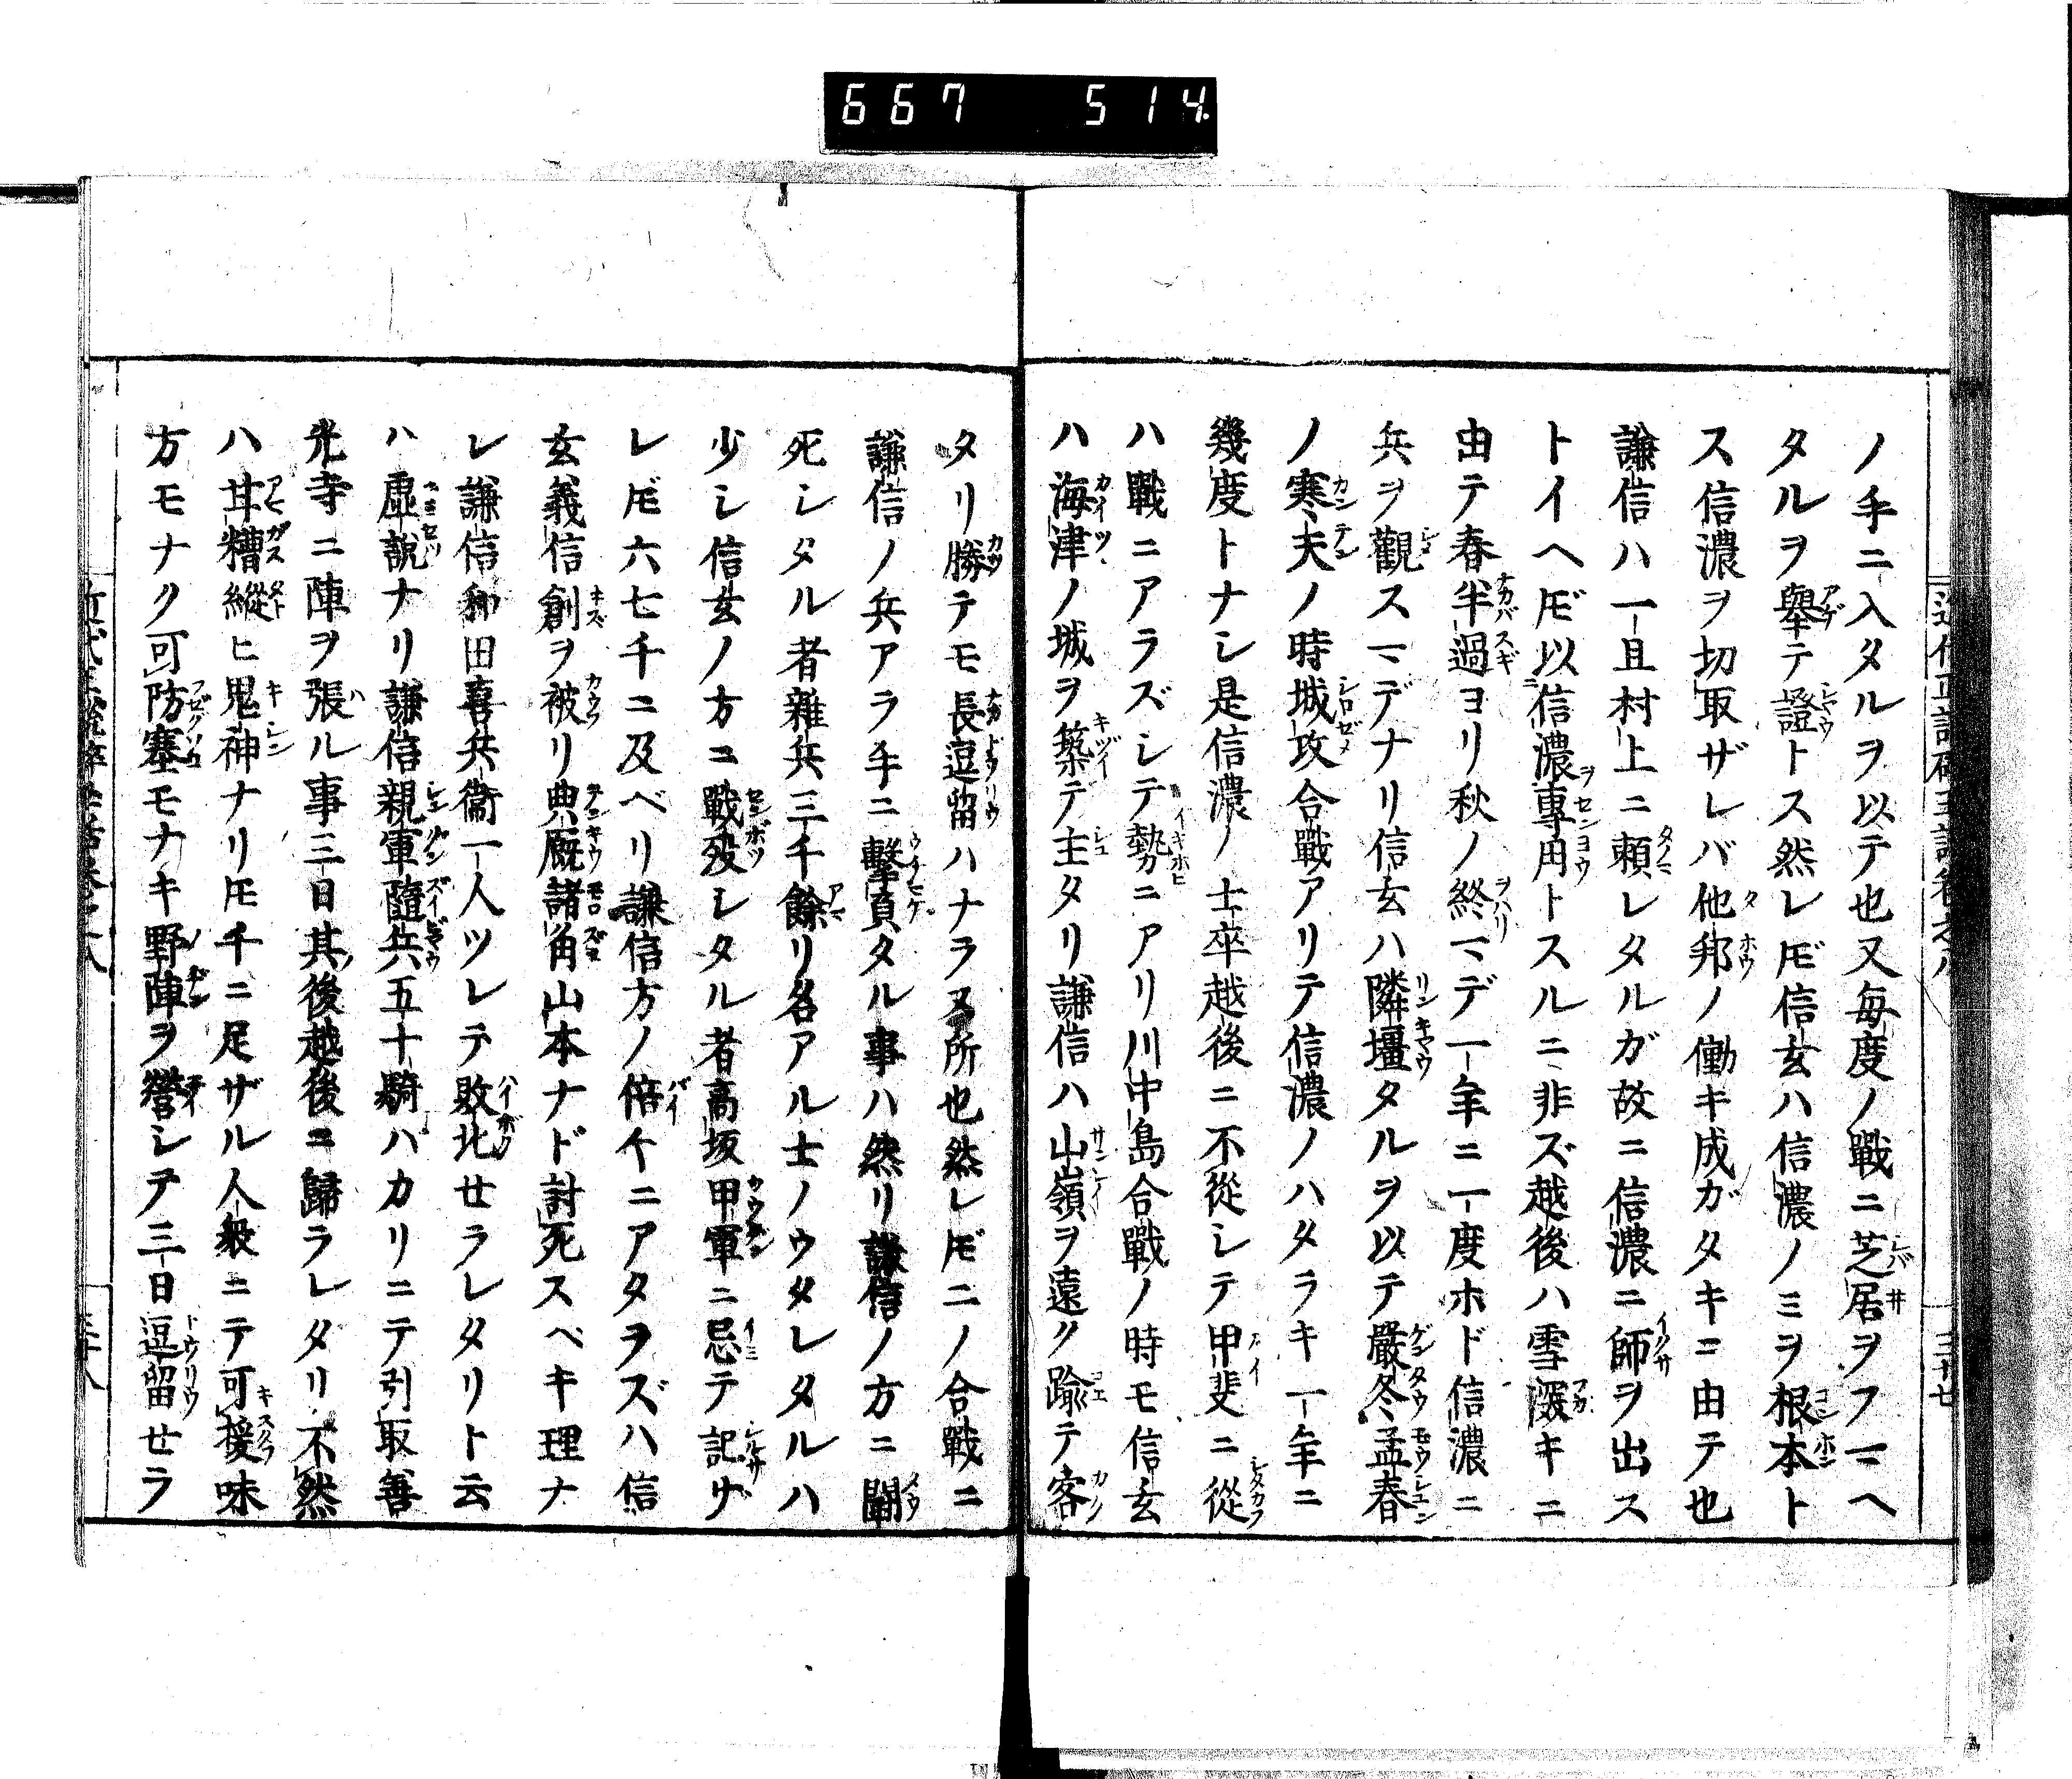 667 514
ノ手ニ入タルヲ以テ也又毎度ノ戰ニ芝居ヲフマヘ
タルヲ擧テ證トス然レ𪜈信玄ハ信濃ノミヲ根本ト
ス信濃ヲ切取ザレバ他邦ノ働キ成ガタキニ由テ也
謙信ハ一旦村上ニ頼レタルガ故ニ信濃ニ師ヲ出ス
トイヘ𪜈以信濃專用トスルニ非ズ越後ハ雪深キニ
由テ春半過ヨリ秋ノ終マデ一年ニ一度ホド信濃ニ
兵ヲ觀スマデナリ信玄ハ隣壃タルヲ以テ嚴冬孟春
ノ寒天ノ時城攻合戰アリテ信濃ノハタラキ一年ニ
幾度トナシ是信濃ノ士卒越後ニ不從シテ甲斐ニ從
ハ戰ニアラズシテ勢ニアリ川中島合戰ノ時モ信玄
ハ海津ノ城ヲ築テ主タリ謙信ハ山嶺ヲ遠ク踰テ客
タリ勝テモ長逗留ハナラヌ所也然レ𪜈二ノ合戰ニ
謙信ノ兵アラ手ニ擊負タル事ハ然リ謙信ノ方ニ鬪
死シタル者雜兵三千餘リ名アル士ノウタレタルハ
少シ信玄ノ方ニ戰歿シタル者高坂甲軍ニ忌テ記サ
レ𪜈六七千ニ及ベリ謙信方ノ倍々ニアタヲズハ信
玄義信創ヲ被リ典厩諸角山本ナド討死スベキ理ナ
レ謙信和田喜兵衞一人ツレテ敗北せラレタリト云
ハ虛說ナリ謙信親軍隨兵五十騎バカリニテ引取善
光寺ニ陣ヲ張ル事三日其後越後ニ歸ラレタリ不然
ハ甘糟縱ヒ鬼神ナリ𪜈千ニ足ザル人級ニテ可援味
方モナク可防塞モナキ野陣ヲ營シテ三日逗留せラ